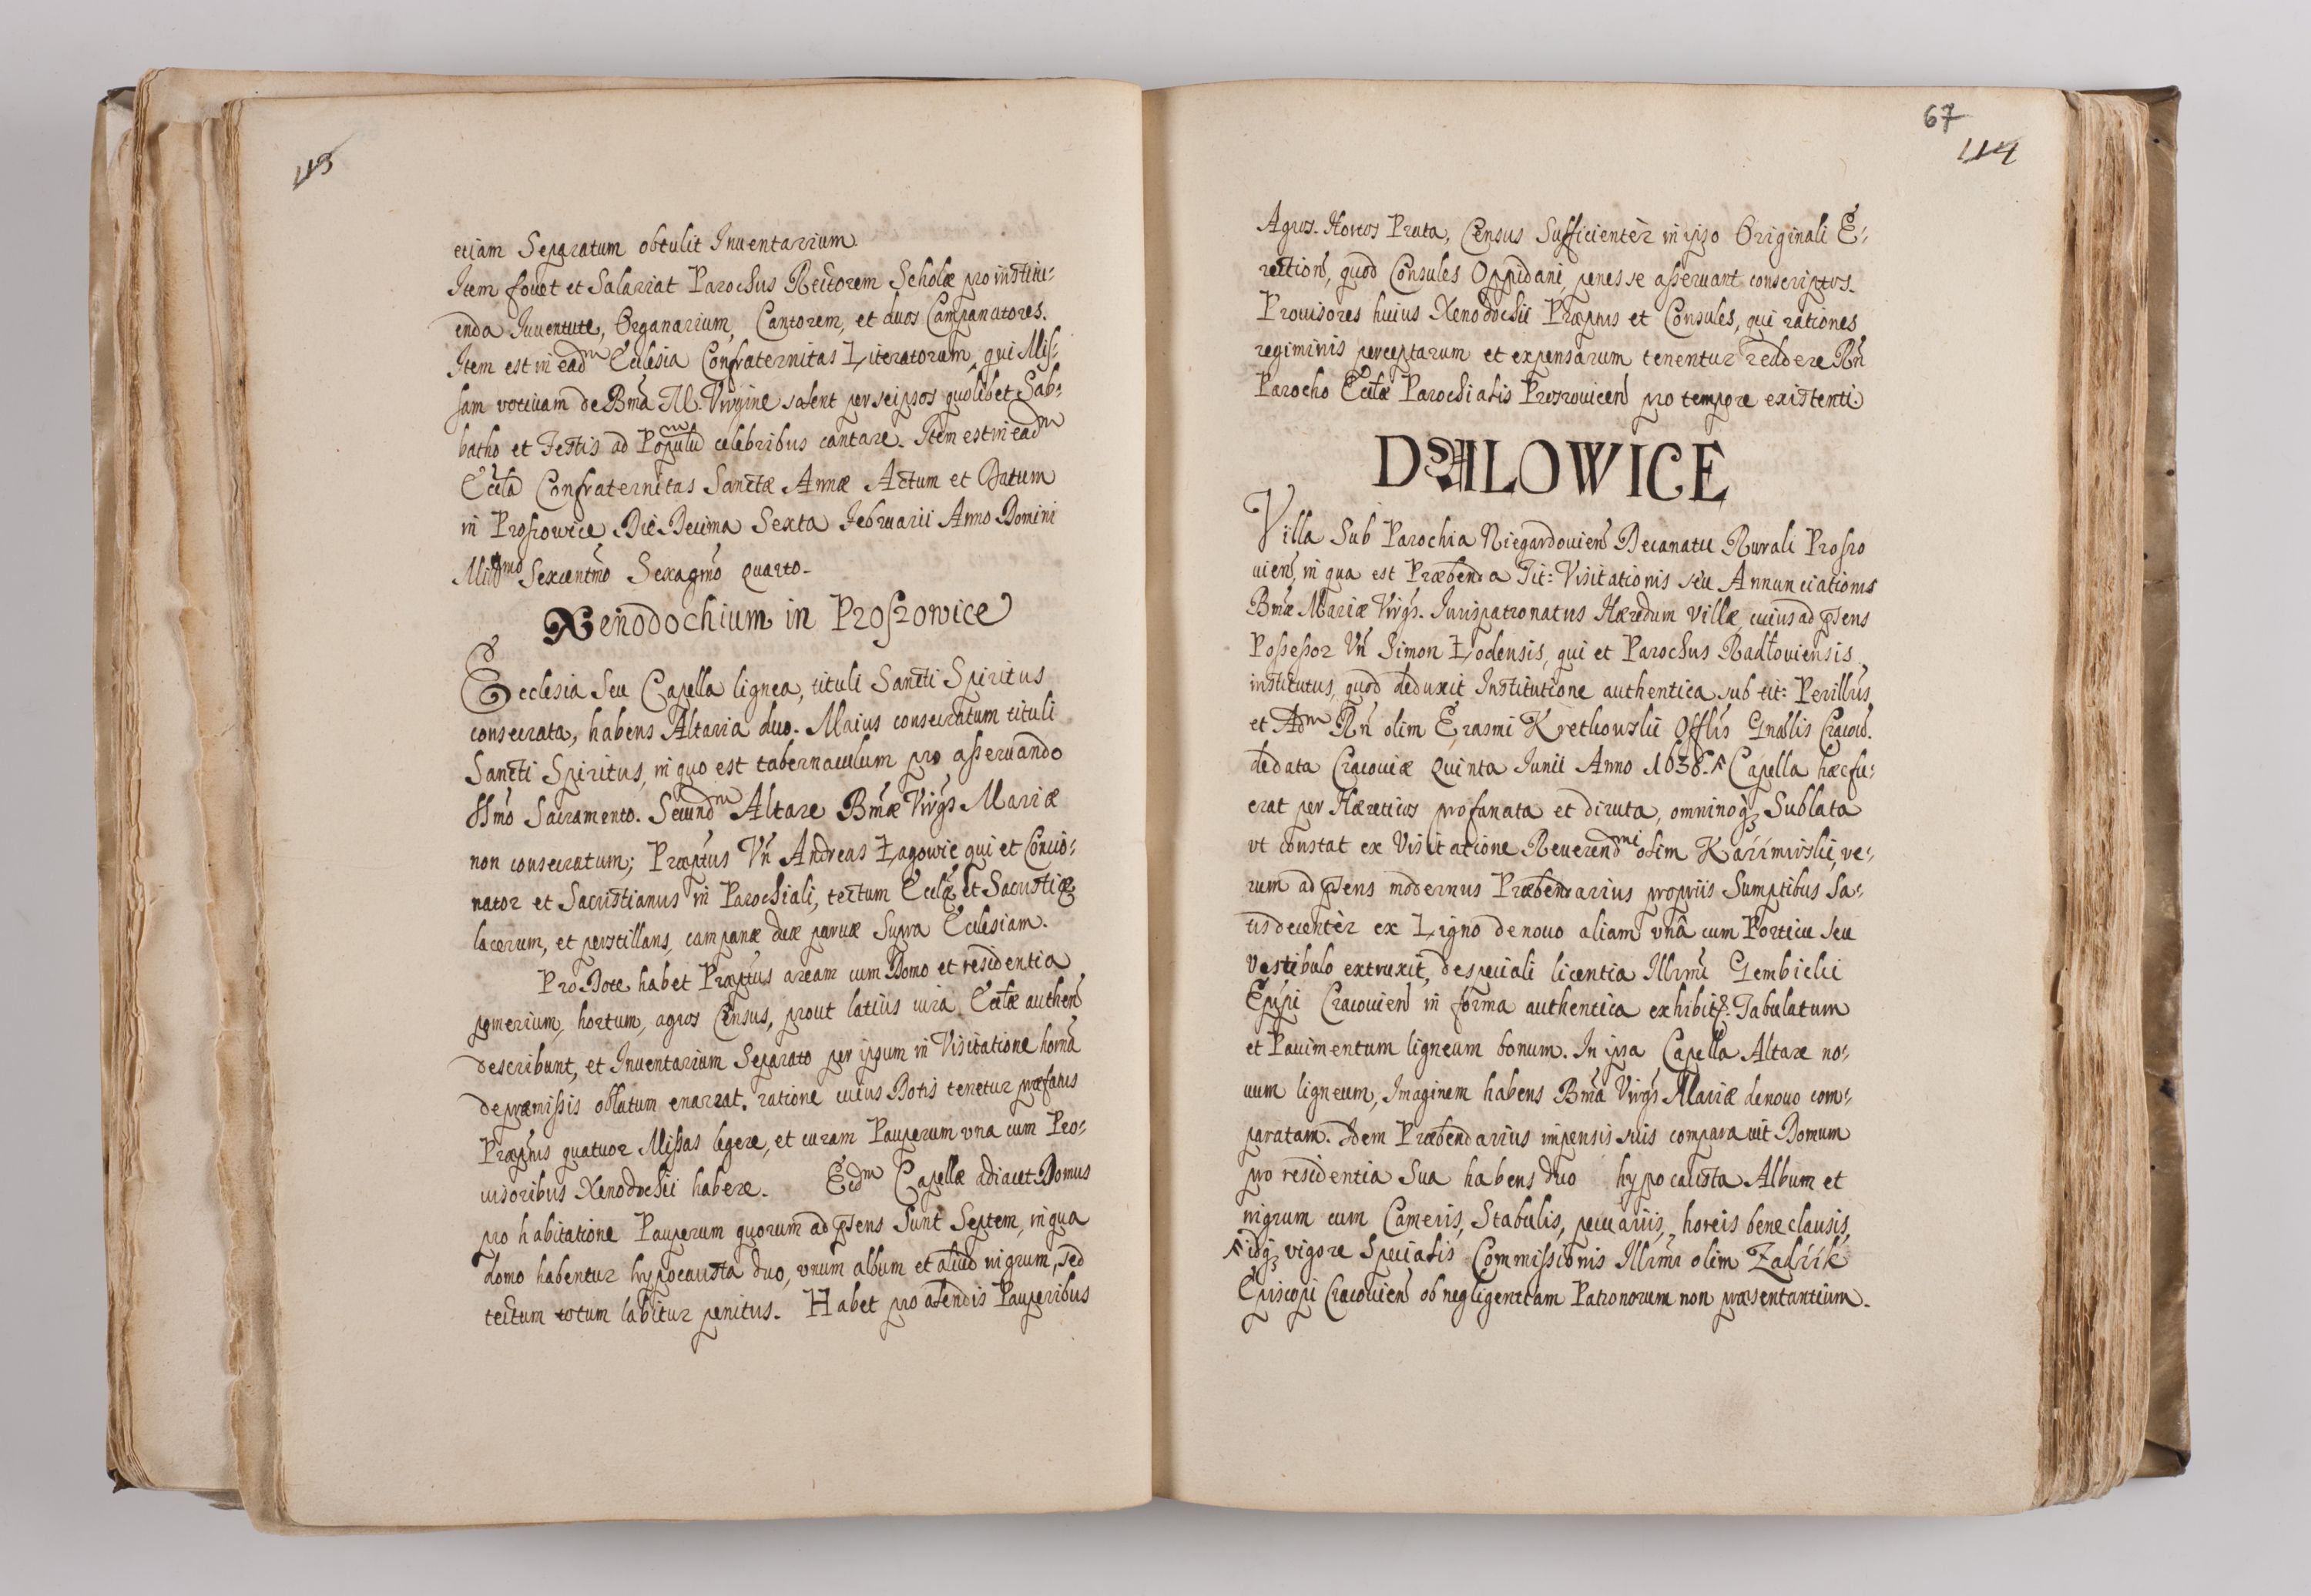 113
etiam Separatum obtulit Inuentarium.
Item fouet et Salariat Parochus Rectorem Scholæ pro institu-
enda Iuuentute, Organarium, Cantorem, et duos Campanatores.
Item est in ead^m Ecclesia Confraternitas Literatorum, qui Mis-
sam votiuam de Bm̃a M. Virgine solent per seipsos quolibet Sab-
batho et Festis ad Populũ^m celebribus cantare. Item est in ead^m
Eccla Confraternitas Sanctæ Annæ Actum et Datum
in Prosrowice Die Decima Sexta Februarii Anno Domini
Mill^mo Sexcentm̃o Sexagm̃o quarto.
Xenodochium in Prosrowice
Ecclesia Seu Capella lignea, tituli Sancti Spiritus
consecrata, habens Altaria duo. Maius consecratum tituli
Sancti Spiritus, in quo est tabernaculum pro asseruando
SSm̃o Sacramento. Secund^m Altare Bm̃æ Virg̃s Mariæ
non consecratum; Præptus Vñ Andreas Łagowic qui et Concio-
nator et Sacristianus in Parochiali, tectum Ecclæ et Sacristiæ
lacerum, et perstillans, campanæ duæ paruæ Supra Ecclesiam.
Pro Dote habet Præptus aream cum Domo et residentia
pomerium, hortum, agros Census, prout latiùs iura Ecclæ authen̄
describunt, et Inuentarium Separato per ipsum in Visitatione horna
de præmissis oblatum enarrat. ratione cuius Dotis tenetur præfatus
Præptus quatuor Missas legere, et curam Pauperum vna cum Pro-
uisoribus Xenodochii habere. Eid^m Capellæ adiacet Domus
pro habitatione Pauperum quorum ad p̃sens Sunt Septem, in qua
domo habentur hypocausta duo, vnum album et aliud nigrum, sed
tectum totum labitur penitus. Habet pro alendis Pauperibus
67
114
Agros. Hortos Prata, Census Sufficientèr in ipso Originali E-
rection̄, quod Consules Oppidani, penes se asseruant conscriptos.
Prouisores huius Xenodochii Præptus et Consules, qui rationes
regiminis perceptarum et expensarum tenentur reddere Rñ
Parocho Ecclæ Parochialis Prosrouicen̄ pro tempore existenti.
DALOWICE
Villa Sub Parochia Niegardouien̄ Decanatu Rurali Prosro
uien̄, in qua est Præbenda Tit: Visitationis seu Annunciationis
Bm̃æ Mariæ Virg̃s. Iurispatronatus Hæredum Villæ, cuius ad p̃sens
Possessor Vñ Simon Łodensis, qui et Parochus Radłouiensis
institutus, quod deduxit Institutione authentica sub tit: Perillus̃
et Ad^m Rñ olim Erasmi Kretkowskii Offlis Gnãlis Cracoui.
de data Cracouiæ Quinta Iunii Anno 1638. Capella hæc fu-
erat per Hæreticos profanata et diruta, omninoq; Sublata
vt constat ex Visitatione Reuerend^mi olim Kazimirskii, ve-
rum ad p̃sens modernus Præbendarius propriis Sumptibus Sa-
tis decentèr ex Ligno denouo aliam vnâ cum Porticu seu
Vestibulo extruxit, de speciali licentia Illrmi Gembickii
Epp̃i Cracouien̄ in forma authentica exhibit. Tabulatum
et Pauimentum ligneum bonum. In ipsa Capella Altare no-
uum ligneum, Imaginem habens Bm̃a Virg̃s Mariæ denouo com-
paratam. Idem Præbendarius impensis suis comparauit Domum
pro residentia Sua habens duo hypocausta Album et
nigrum cum Cameris, Stabulis, pecuariis, horeis bene clausis,
idq; vigore Specialis Commissionis Illrmi olim Zadzik
Episcopi Cracouien̄ ob negligentiam Patronorum non præsentantium.